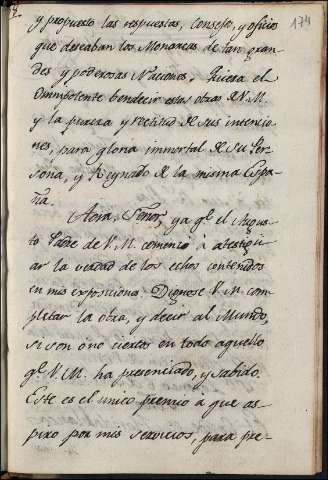 174
y propuesto las respuestas, consejos, y oficios
que deseaban los Monarcas de tan gran-
des y poderosas Naciones. Quiera el
Omnipotente bendecir estas obras de V. M.
y la pureza y rectitud de sus intencio-
nes, para gloria immortal de su Per-
sona, y Reynado de la misma Espa-
ña.
Aora, Señor, ya qe. el Augus-
to Padre de V. M. comenzó à atestigu-
ar la verdad de los echos contenidos
en mis exposiciones. Dignese V. M. com-
pletar la obra, y decir al Mundo,
si son ò no ciertos en todo aquello
qe. V. M. ha presenciado, y sabido.
Este es el unico premio à que as-
piro por mis servicios, para pre-